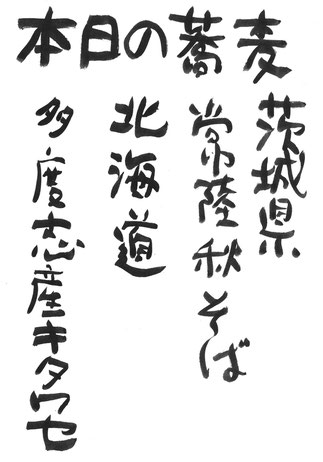 本日の蕎麦
茨城県
常陸秋そば
北海道
多度志産キタワセ